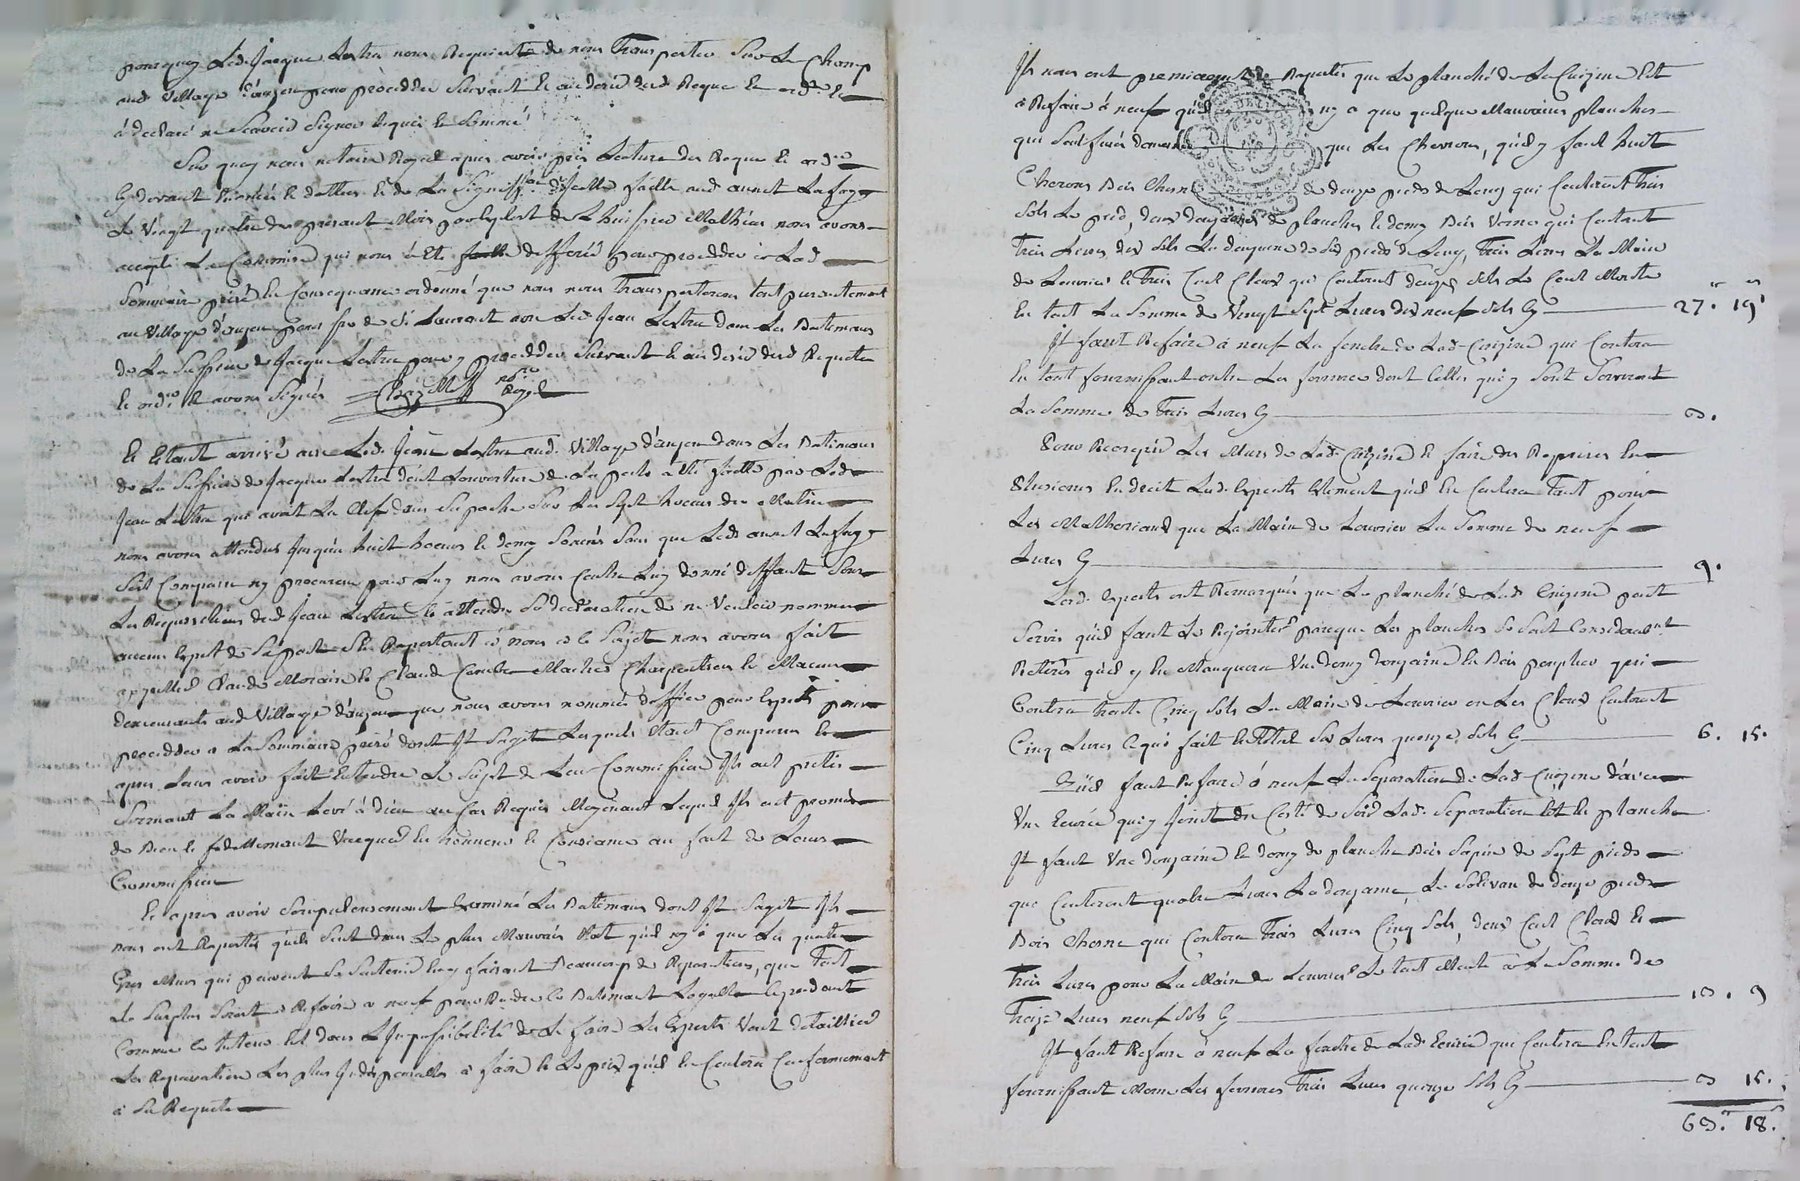 pourquoy Led. Jacque Lestra nous Requiert de nous Transporter Sur Le Champ
aud Village d'anjou pour procedder Suivant Le
à declaré ne Scavoir Signer Requis Et Sommé
Sur quoy nous notaire Royal apres avoir pris Lecture des Reque Et ord.
Le Vingt quatre du present Mois par Exploit de L'huissier Mathieu nous avons
accepté La Commise qui nous à Eté defferée pour procedder à Lad
Sommaire prisé En Consequence ordonné que nous nous Transporterons tout presentement
au Village d'anjou parr.sse de St Laurent avec Led. Jean Lestra dans Les Batimans
de La Succion de Jacque Lestra pour y procedder Suivant Lad Requete
Et ord.ce Et avons Signés
Royal
Et Etant arrivé avec Led. Jean Lestra aud. Village d'anjou dans Les Batimans
de La Succion de Jacque Lestra dont Louverture de La porte a Eté faitte par Led.
Jean Lestra qui avoit La Clef dans Sa poche Sur Les Sept heures du Matin
nous avons attendus Jusqu'à huit heures Et demy Sonnés Sans que Led.
Soit Comparu ny procureur pour Luy nous avons Contre Luy donné deffaut Sur
Les Requisitions dud Jean Lestra Et attendu Sa declaration de ne Vouloir nommer
aucun Expert de Sa part S'En Raportant à nous à Ce Sujet nous avons fait
appellés Claude Et Claude Maitres Charpentiers Et Macons
demeurants aud Village d'anjou que nous avons nommés d'office pour Experts pour
procedder à La Sommaire prisé dont Jl Sagit Lesquels Etant Comparus Et
apres Leurs avoir fait Entendre Le Sujet de Leur Commission Jls ont pretés
Serment La Main Levé à dieu au Cas Requis Moyenant Lequel Jls ont promis
de Bien Et fidellement Vacquer En honneur Et Consiance au fait de Leurs
Commission
Et apres avoir Scrupuleusement Examiné Les Batimans dont Jl Sagit Jls
nous ont Raportés qu'ils Sont dans Le plus Mauvais Etat qu'il ny à que Les quatre
Gros Murs qui peuvent Se Soutenir En y faisant Beaucoup de Reparations, que Tout
Le Surplus Seroit à Refaire à neuf pour Rendre Ce Batiment Logeable Cependant
Comme Le tuteur Est dans L'Impossibilité de Le faire Les Experts Vont detaillier
Les Reparations Les plus Indispensables à faire Et Le prix qu'il En Coutera Conformement
à Sa Requete
Jls nous ont premierement Raportés que Le planché de La Cuizine Est
à Refaire à neuf ny a que quelque Mauvaises planches
qui Sont que Les Chevrons, qu'il y faut huit
Chevrons Bois Chene de douze pieds de Long qui Couteront Trois
Sols Le pied, deux douzaines de planches Et demy Bois Verne qui Coutent
Trois Livres dix Sols La douzaine de Six pieds de Long, Trois Livres La Main
de Louvrier Et Trois Cent Cloud qui Coutent douze Sols Le Cent Monte
En tout La Somme de Vingt Sept Livres dix neuf Sols Cy 27. 19
Jl faut Refaire à neuf La fenetre de Lad. Cuizine qui Coutera
En tout fournissant outre Les ferrures dont Celles qui y Sont Serviront
La Somme de Trois Livres Cy 3.
Pour Recrepir Les Murs de Lad. Cuizine Et faire des Reprises En
Plusieurs Endroit Lesd. Experts Estiment qu'il En Coutera Tant pour
Les Matheriaux que La Main de Louvrier La Somme de neuf
Livres Cy 9.
Lesd. Experts ont Remarqués que Le planché de Lad. Cuizine peut
Servir qu'il faut Le Rejointer parceque Les planches Se Sont Considerablent
Retirés qu'il y En Manquera Une demy douzaine En Bois peuplier qui
Coutera trente Cinq Sols La Main de Louvrier ou Les Cloud Couteront
Cinq Livres Ce qui fait En Total Six Livres quinze Sols Cy 6. 15.
Qu'il faut Refaire à neuf La Separation de Lad. Cuizine d'avec
Une Ecurie qui y Joint du Coté de Soir Lad. Separation Est En planche
Jl faut Une douzaine Et demy de planche Bois Sapin de Sept pieds
qui Couteront quatre Livres La douzaine, Le Solivau de douze pieds
Bois Chesne qui Coutera Trois Livres Cinq Sols, deux Cent Cloud Et
Trois Livres pour La Main de Louvrier Le tout Monte à La Somme de
Treize Livres neuf Sols Cy 13. 9
Jl faut Refaire à neuf La fenetre de Lad. Ecurie qui Coutera En tout
fournissant Meme Les ferrures Trois Livres quinze Sols Cy 3 15.
63. 18.